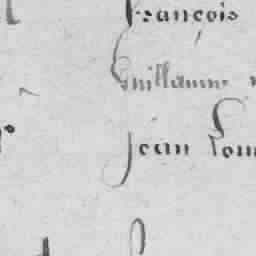 François
Guillaume
jean Lou